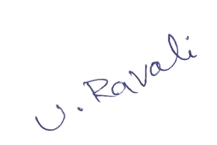 U. Ravali